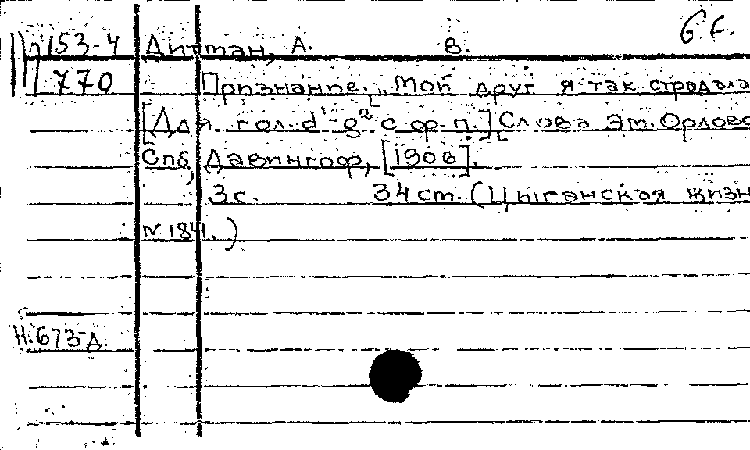 153-4 Дитман, А. В. б.г.
770 Признание. "Мой друг я так страдала
[Для гол. d¹-g² с ф-п.] Слова Эт. Орлово
Спб, Давингоф, [190в].
3 с. 34 ст. (Цыганская жизн
N. 184.)
Н.673-д.